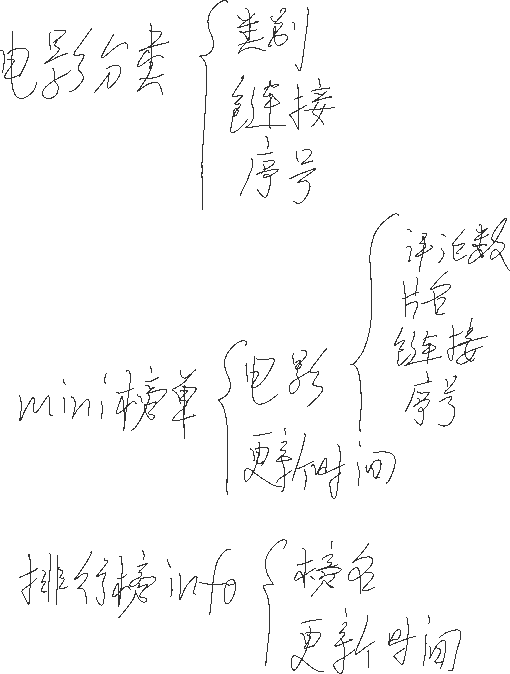 电影分类
类别
链接
序号
mini榜单
电影
评论数
片名
链接
序号
更新时间
排行榜info
榜名
更新时间